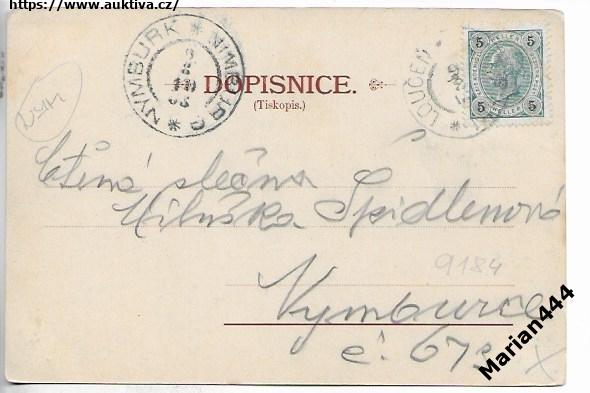 https://www.auktiva.cz/
NYMBURK * NIMBURG *
DOPISNICE.
(Tiskopis.)
LOUČEŇ
5 5
5 5
Ctěná slečna
Miluška Špidlenová
9184
Nymburce
č. 67
Marian444